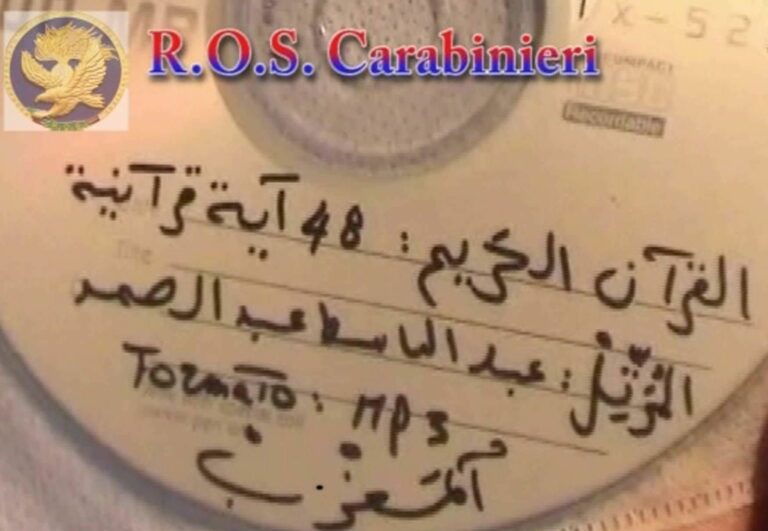 R.O.S. Carabinieri
x-52
COMPACT
Recordable
القرآن الكريم : 48 آية قرآنية
المُرَتِّلْ : عبد الباسط عبد الصمد
Formato : MP3
المَغرب